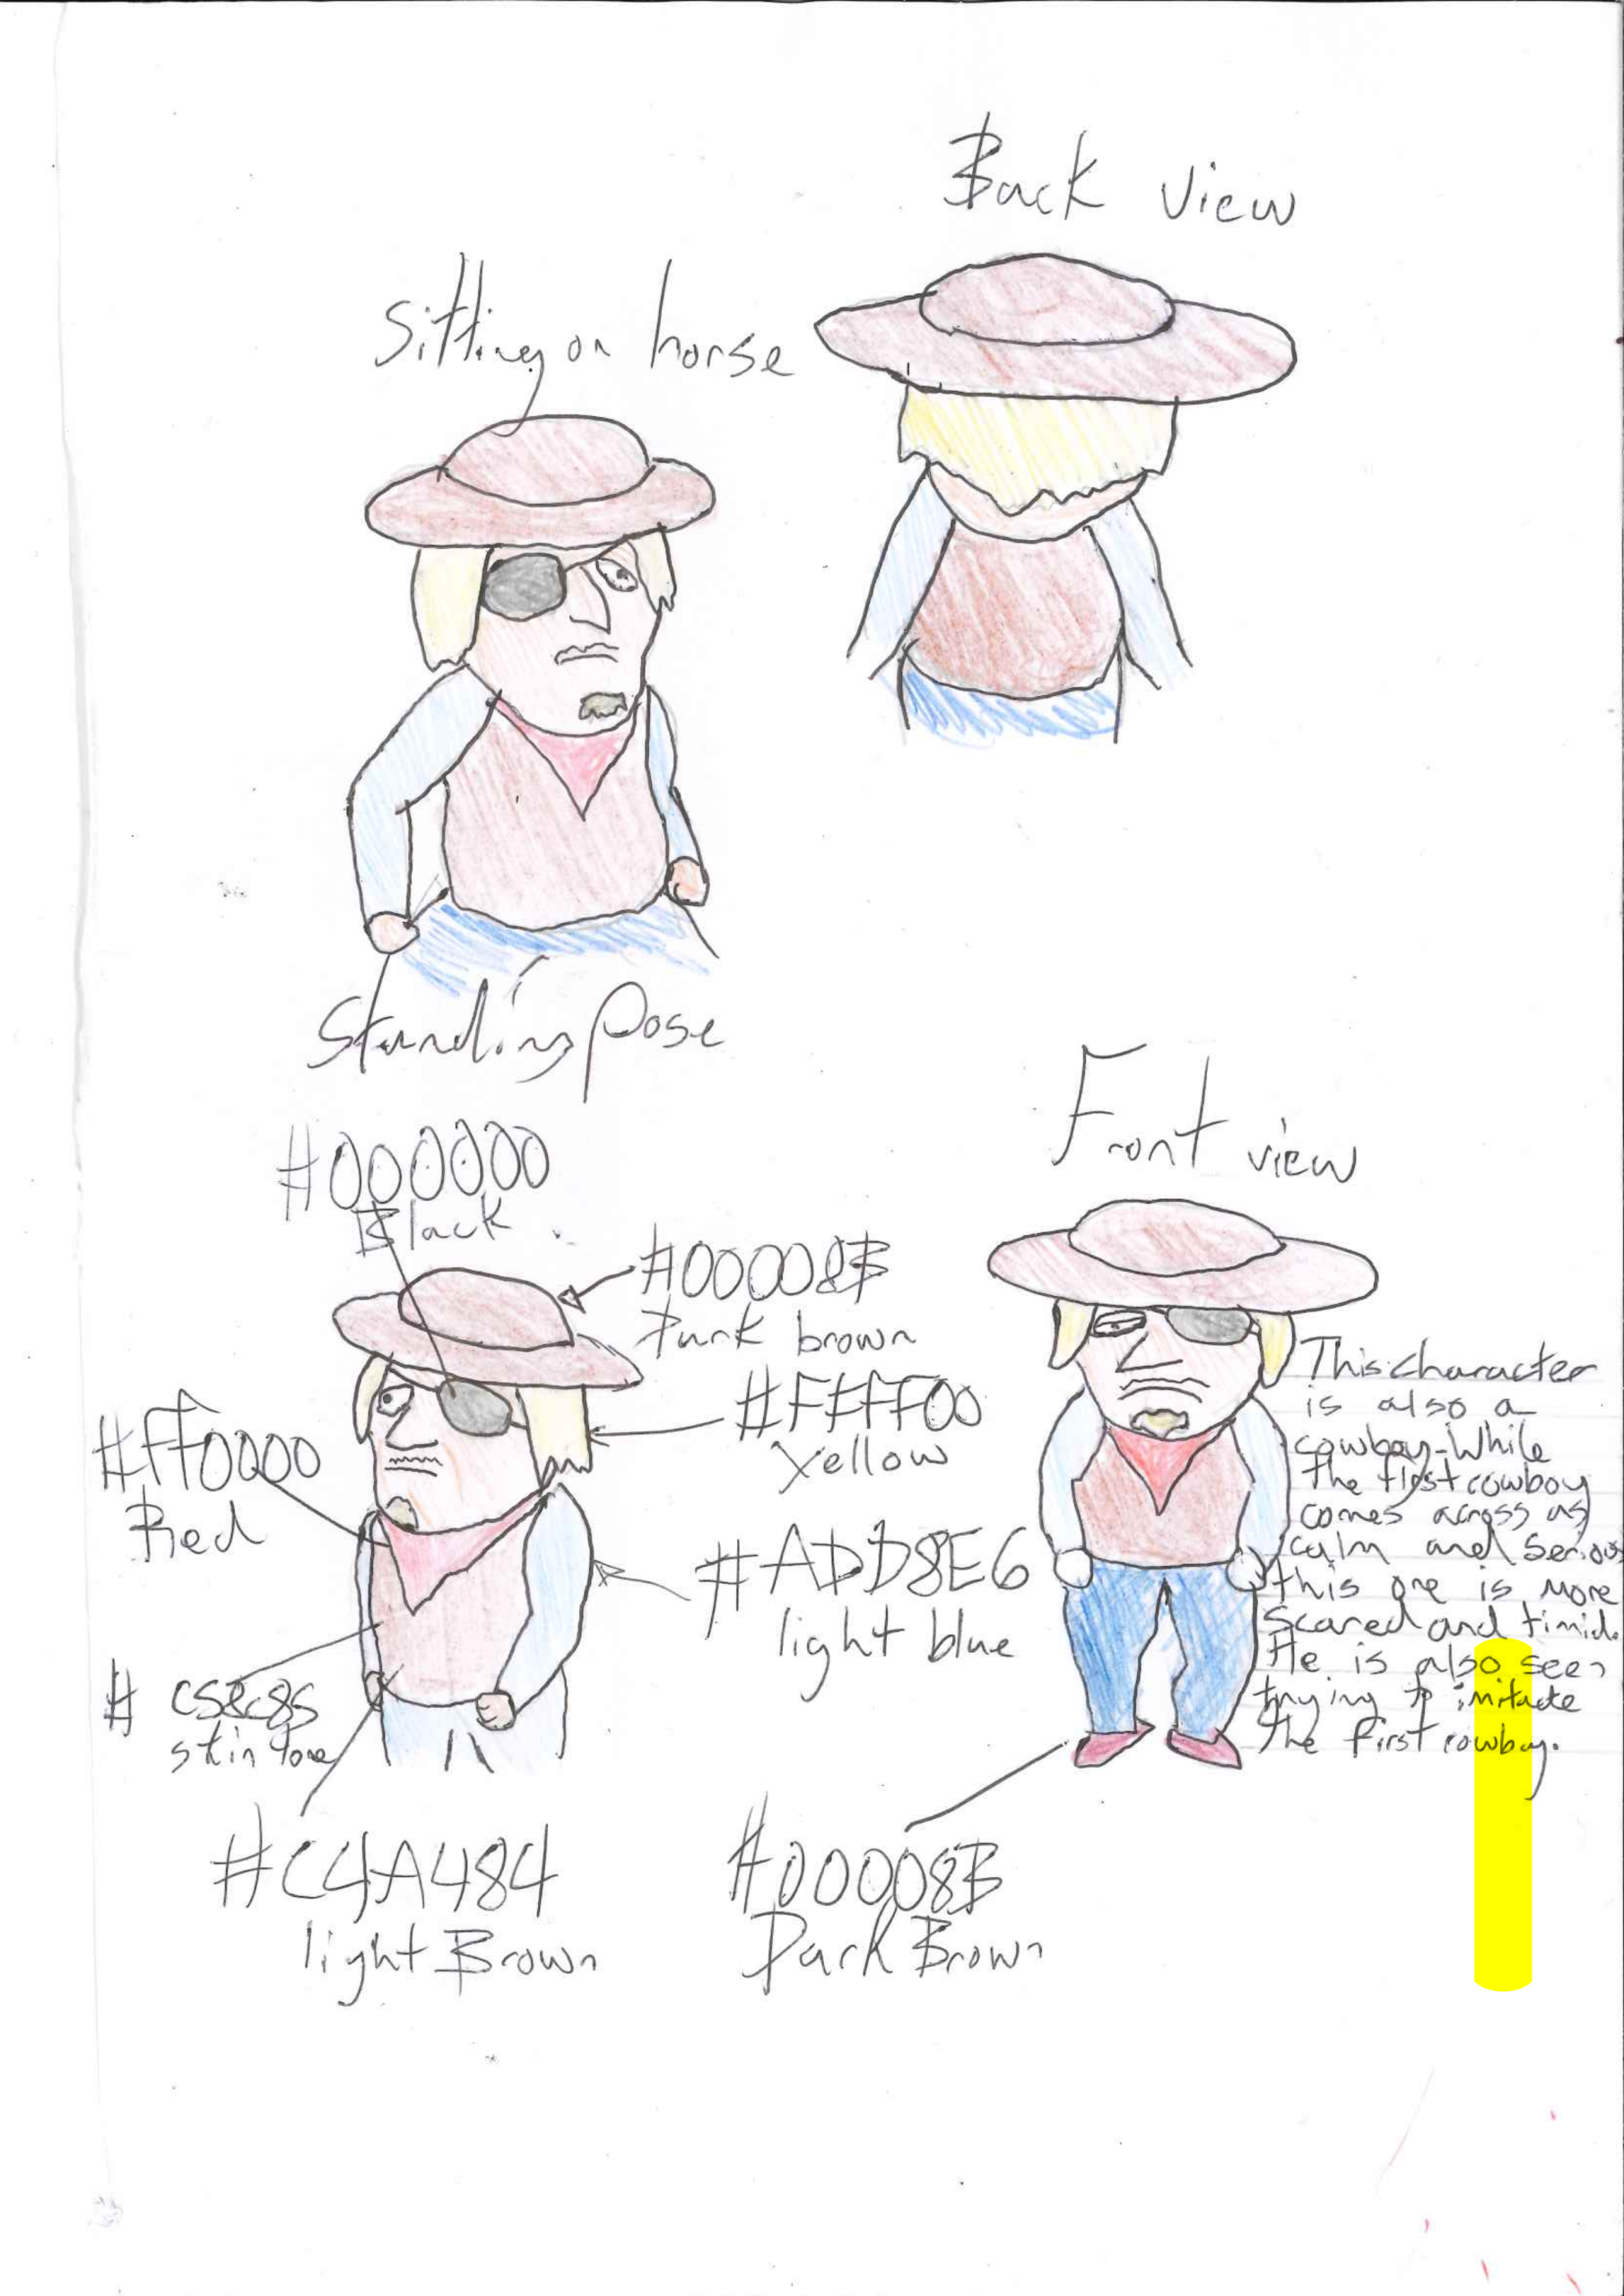 Back view
Sitting on horse
Standing Pose
#000000
Black
Front view
#00008B
Dark brown
#FFFF00
yellow
#ff0000
Red
This character
is also a
cowboy. While
the first cowboy
comes across as
calm and serious
this one is more
scared and timid.
He is also seen
trying to imitate
the first cowboy.
#ADD8E6
light blue
# c58c85
skin tone
#C4A484
light Brown
#00008B
Dark Brown